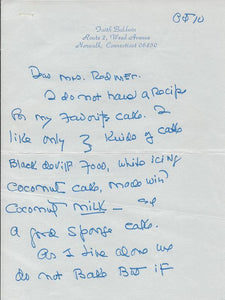 Faith Baldwin
Route 2, Weed Avenue
Norwalk, Connecticut 06850
Oct 10
Dear Mrs. Radmer.
I do not have a Recipe
for my favorite cake. I
like only 3 kinds of cake
Black devil's Food, white icing
Coconut cake, made with
Coconut MILK —
a good Sponge cake.
As I live alone we
do not Bake But if